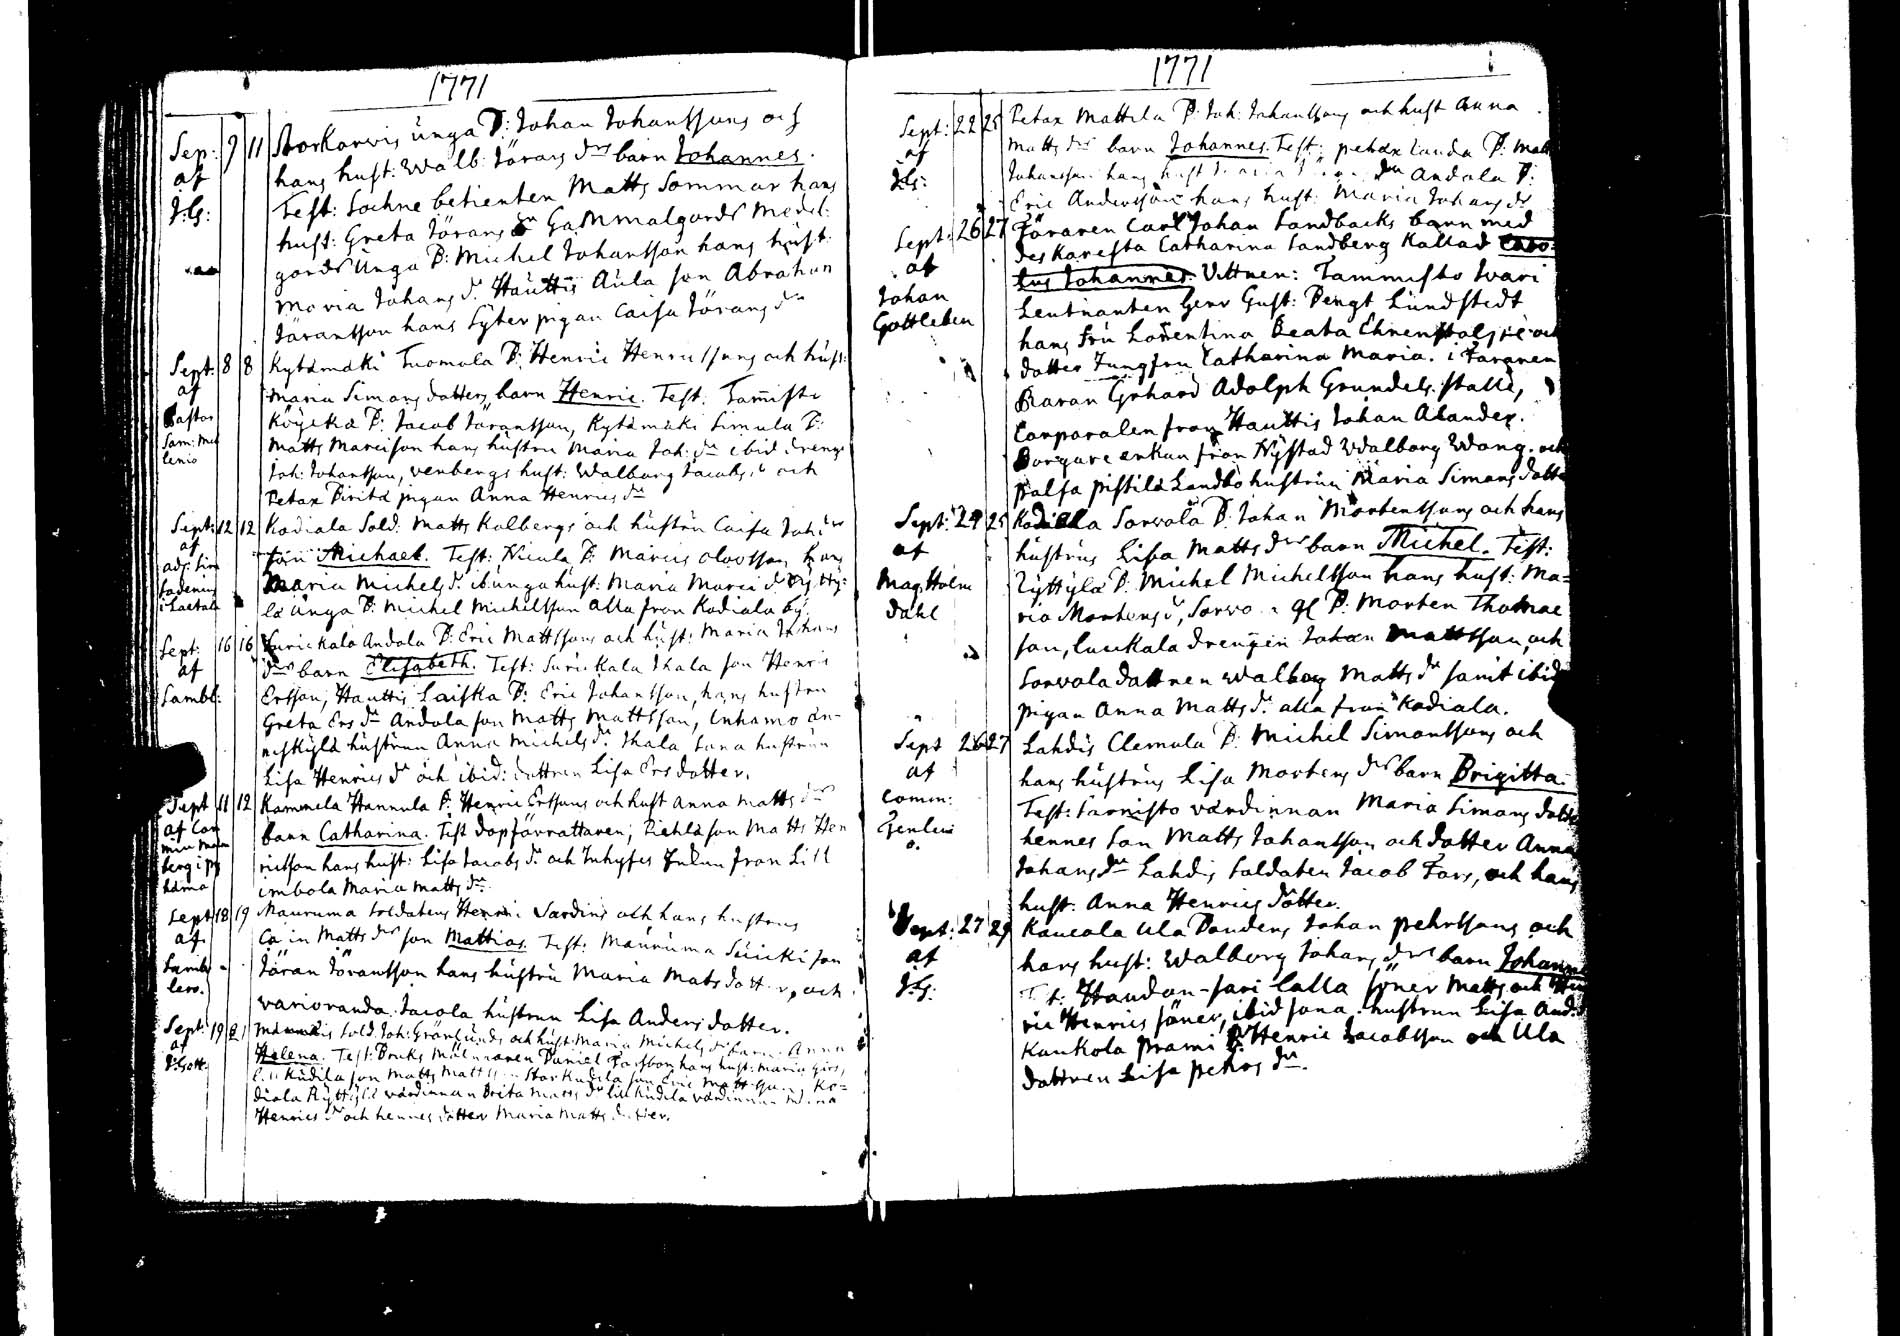 1771
Sep: 9 11 Storkarvis unga B: Johan Johanssons och
af hans hust: Walb: Jörans drs barn Johannes.
J:G: Test: Sochne betienten Matts Sommar hans
hust: Greta Jörans dr Gammalgords Medel:
gords Unga B: Michel Johansson hans hust:
Maria Johans dr. Hauttis Aula son Abraham
Jöransson hans Syster pigan Caisa Jörans dr
Sept: 8 8 Kytämäki Tuomola B: Henric Henricssons och hust:
af Maria Simons dotters barn Henric. Test: Tammisto
Pastor Köykkä B: Jacob Jöransson, Kytämäki Simula B:
Sam: Mel Matts Marcison hans hustru Maria Joh: dr ibid drengen
lenio Joh: Johansson, venbergs hust: Walborg Jacobs dr och
Petax Pirilä pigan Anna Henrics dr
Sept: 12 12 Kodiala Sold: Matts Kalbergs och hustru Caisa
af son Michael. Test: Nicula B: Marcus Olovsson hans
adj: Maria Michels dr. ib: unga hust: Maria Marci dr
i Laitala lä Unga B: Michel Michelsson alla från Kodiala by.
Sept: 16 16 Surickala Andola B: Eric Mattssons och hust: Maria Johans
af drs barn Elisabeth. Test: Surickala Ikala son Henric
Lambl: Ersson, Hauttis Laiska B: Eric Johansson, hans hustru
Greta Ers dr Andola son Matts Mattsson, Inhamo än-
neskylä hustrun Anna Michels dr. Ikala hustrun
Lisa Henrics dr och ibid: dottren Lisa Ers dotter.
Sept 11 12 Kammela Hannula B: Henric Erssons och hust Anna Matts drs
af Com barn Catharina. Test dopförrättaren; Piehlä son Matts Hen
min ricsson hans hust: Lisa Jacobs dr och från Lill
berg i py
häma imbola Maria Matts dr.
Sept 18 19 Mauruma soldatens Henric Sardins och hans hustrus
af Cain Matts drs son Mathias. Test: Mauruma Suicki son
Lamb Jöran Jöransson hans hustru Maria Mats dotter, och
lero. varioranda Jacola hustrun Lisa Anders dotter.
Sept: 19 21 Männäis sold: Joh: Grönlunds och hust: Maria Michels drs barn Anna
af Helena. Test: Bruks Mülnaren Daniel hans hust: Maria
J:Gott: Kudila son Matts Mattsson Storkudila son Eric Mattsson, Ko-
diala Ryttylä värdinnan Brita Matts dr Lillkudila värdinnan
Henrics dr och hennes dotter Maria Matts dotter.
1771
Sept: 22 25 Petax Mattila B: Joh: Johanssons och hust Anna
af Matts drs barn Johannes. Test: Petax Landa B: Matts
J:G: Johansson hans hust dr Andola B:
Eric Andersson hans hust: Maria Johans dr
Sept: 26 27 Föraren Carl Johan Sandbacks barn med
af des Karesta Catharina Sandberg kallad Caro-
Johan lus Johannes. Vittnen: Tammisto Ivari
Gottleben Leutnanten Herr Gust: Bengt Lundstedt
hans fru Lorentina Beata Ehrenstolpe och
dotter Jungfru Catharina Maria. i Faranen
Baron Gerhard Adolph Grundels ställe,
Corporalen fron Hauttis Johan Alander.
Borgare enkan från Nystad Walborg Wang. och
Palsa pistilä Landbo hustrun Maria Simons dotter
Sept: 24 25 Kodiala Sorvola B: Johan Mortenssons och hans
af hustrus Lisa Matts drs barn Michel. Test:
Mag: Holm Ryttylä B: Michel Michelsson hans hust: Ma-
dahl ria Mortens dr, Sorvola gl B: Morten Thomae
son, Luckala drengen Johan Mattsson, och
Sorvola dottren Walborg Matts dr samt ibid
pigan Anna Matts dr. alla från Kodiala.
Sept 26 27 Lahdis Clemola B: Michel Simonssons och
af hans hustrus Lisa Mortens drs barn Brigitta.
Comm: Test: Tarvisto värdinnan Maria Simons dotter
hennes son Matts Johansson och dotter Anna
Johans dr Lahdis soldaten Jacob Fors, och hans
hust: Anna Henrics dotter.
Sept: 27 29 Kaucola Ula Bondens Johan Pehrssons och
af hans hust: Walborg Johans drs barn Johannes
J:G: Test: Haudon-sari Lalla söner Matts och Hen
ric Henrics söner, ibid Jona hustrun Lisa And: d
Kaukola Prami B: Henric Jacobsson och Ula
dottren Lisa Pehrs dr.